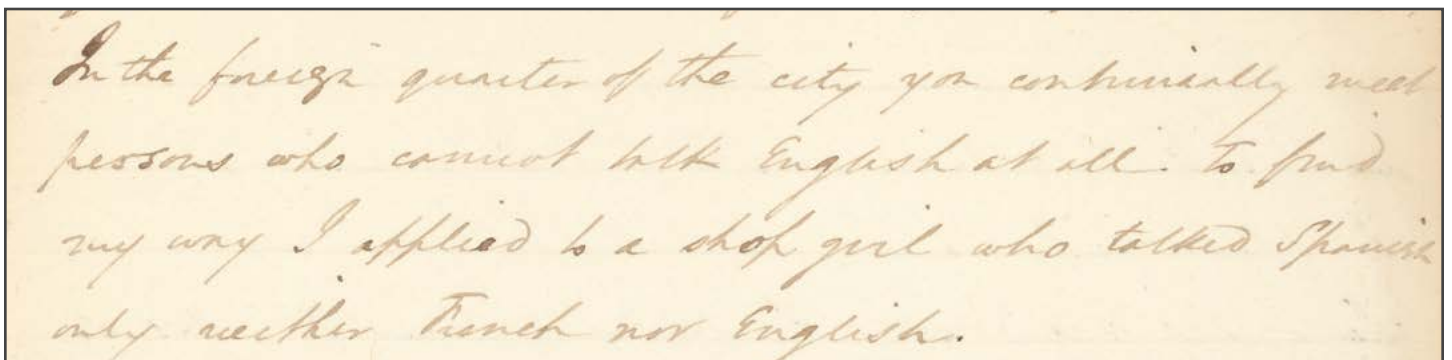 In the foreign quarter of the city you continually meet
persons who cannot talk English at all. To find
my way I applied to a shop girl who talked Spanish
only neither French nor English.